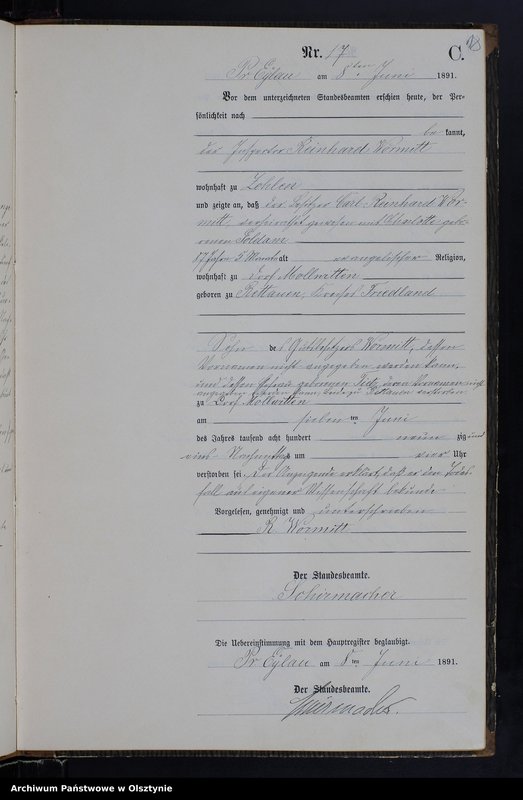 Nr. 17
C.
Pr. Eylau am 8ten Juni 1891.
Vor dem unterzeichneten Standesbeamten erschien heute, der Per-
sönlichkeit nach
be kannt,
der Inspector Reinhard Wormitt
wohnhaft zu Zohlen
und zeigte an, daß der Besitzer Carl Reinhard Wor-
mitt, verheirathet gewesen mit Charlotte gebo-
renen Soldam
87 Jahre 5 Monate alt evangelischer Religion,
wohnhaft zu Dorf Mollwitten
geboren zu Rettauen, Kreises Friedland
Sohn des Gutsbesitzers Wormitt, dessen
Vornamen nicht angegeben werden kann,
und dessen Ehefrau geborenen deren Vornamen nicht
angegeben werden kann, beide zu Rettauen verstorben
zu Dorf Mollwitten
am sieben ten Juni
des Jahres tausend acht hundert neun zig und
eins Nachmittags um vier Uhr
verstorben sei. Der Anzeigende erklärt, daß er den Todes-
fall aus eigener Wissenschaft bekunde
Vorgelesen, genehmigt und unterschrieben
R. Wormitt
Der Standesbeamte.
Schirmacher
Die Uebereinstimmung mit dem Hauptregister beglaubigt.
Pr Eylau am 8ten Juni 1891.
Der Standesbeamte.
Schirmacher.
Archiwum Państwowe w Olsztynie